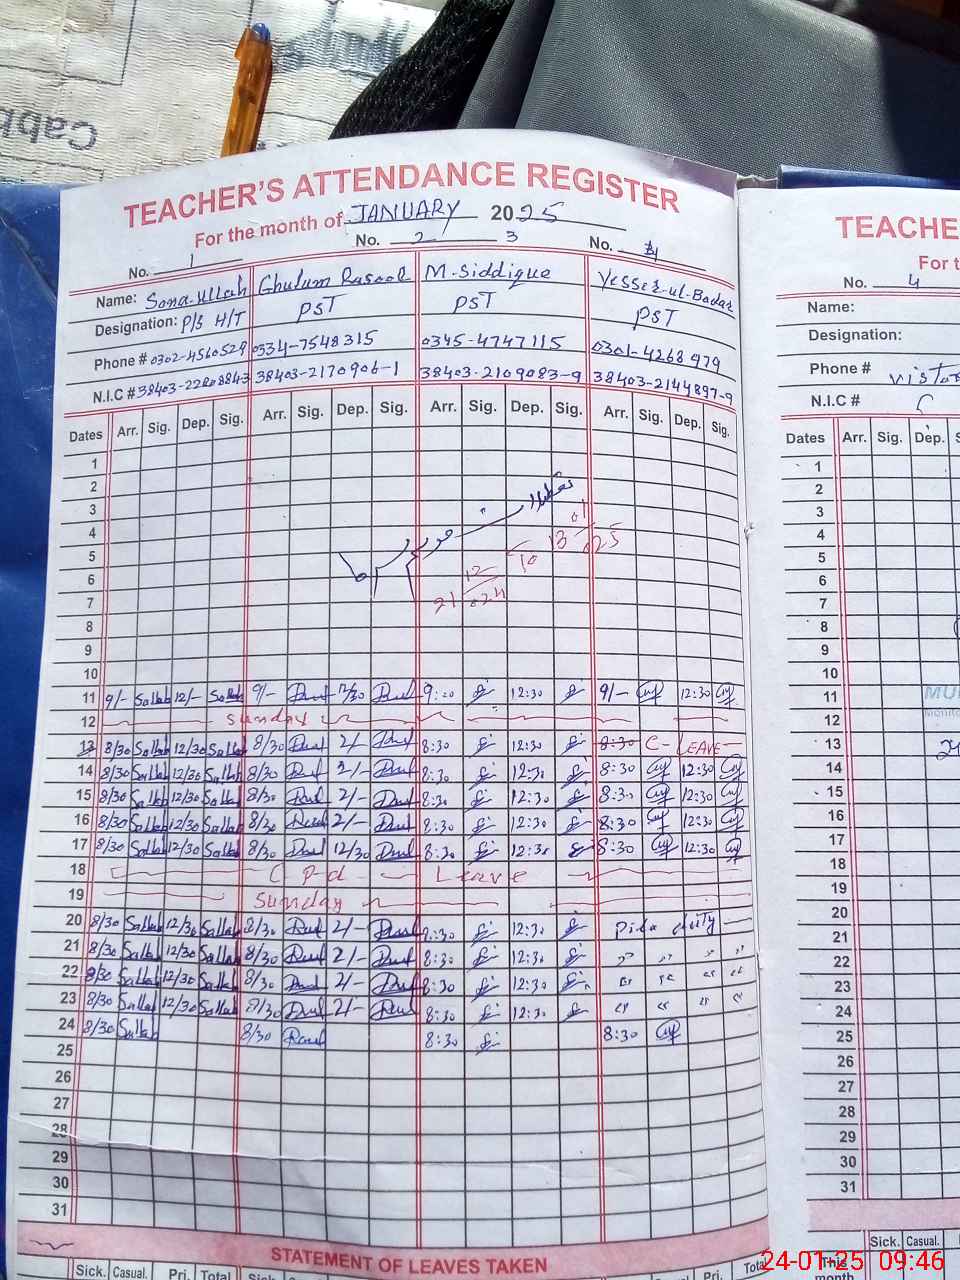 Cabb
TEACHER'S ATTENDANCE REGISTER
For the month of JANUARY 2025
No. 1 No. 2 3 No. 4
Name: Sana-Ullah Ghulam Rasool M.Siddique Yesser-ul-Badar
Designation: P/S H/T PST PST PST
Phone # 0302-4560529 0334-7548315 0345-4747115 0301-4268979
N.I.C # 38403-2170906-1 38403-2109083-9 38403-2144897-9
Dates Arr. Sig. Dep. Sig. Arr. Sig. Dep. Sig. Arr. Sig. Dep. Sig. Arr. Sig. Dep. Sig.
1
2
3
4
5
6
7
8
9
10
21 12 024 10 13 01 025
11 9/- Sallah 12/- Sallah 9/- 12/30 9:00 12:30 9/- 12:30
12 Sunday
13 8/30 Sallah 12/30 Sallah 8/30 2/- 8:30 12:30 8:30 C-LEAVE
14 8/30 Sallah 12/30 Sallah 8/30 2/- 8:30 12:30 8:30 12:30
15 8/30 Sallah 12/30 Sallah 8/30 2/- 8:30 12:30 8:30 12:30
16 8/30 Sallah 12/30 Sallah 8/30 2/- 8:30 12:30 8:30 12:30
17 8/30 Sallah 12/30 Sallah 8/30 12/30 8:30 12:30 8:30 12:30
18 CPd Leave
19 Sunday
20 8/30 Sallah 12/30 Sallah 8/30 2/- 8:30 12:30 duty
21 8/30 Sallah 12/30 Sallah 8/30 2/- 8:30 12:30 " " " "
22 8/30 Sallah 12/30 Sallah 8/30 2/- 8:30 12:30 " " " "
23 8/30 Sallah 12/30 Sallah 8/30 2/- 8:30 12:30 " " " "
24 8/30 Sallah 8/30 8:30 8:30
25
26
27
28
29
30
31
STATEMENT OF LEAVES TAKEN
Sick. Casual. Pri. Total Sick. Pri. Total
TEACHE
For t
No. 4
Name:
Designation:
Phone #
N.I.C #
Dates Arr. Sig. Dep. S
1
2
3
4
5
6
7
8
9
10
11
12
13
14
15
16
17
18
19
20
21
22
23
24
25
26
27
28
29
30
31
Sick. Casual.
This
month
24-01-25 09:46